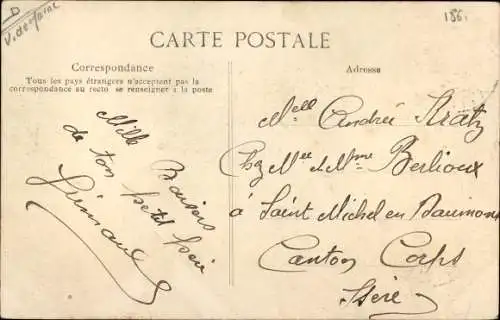 D
V. de-faire
186.
CARTE POSTALE
Correspondance
Tous les pays étrangers n'acceptent pas la
correspondance au recto se renseigner à la poste
Adresse
Mille Baisers
de ton petit frère
Mell Andrée Kratz
Chz Mr et Mme Berlioux
à Saint Michel en Beaumont
Canton Corps
Isère